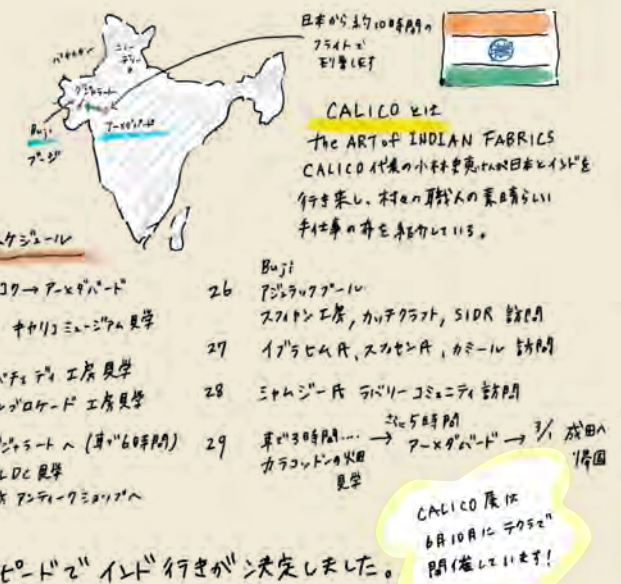 日本から約10時間の
フライトで
到着します
パキスタン
ニュー
デリー
グジャラート
アーメダバード
Buji
ブージ
CALICOとは
the ART of INDIAN FABRICS
CALICO代表の小林史恵さんが日本とインドを
行き来し、村々の職人の素晴らしい
手仕事の布を紹介している。
ケジュール
コク→アーメダバード
キャリコミュージアム見学
工房見学
ブロケード工房見学
ジャラートへ(車で6時間)
LDC見学
アンティークショップへ
26 Buji
アジュラックプール
スフィヤン工房, カッチクラフト, SIDR 訪問
27 イブラヒム氏, スフセン氏, カミール 訪問
28 シャムジー氏 ラバリーコミュニティ訪問
29 車で3時間.... → さらに5時間 アーメダバード → 3/1 成田へ
カラコットンの畑
見学
帰国
CALICO展は
6月10月にテクラで
開催しています!
ピードでインド行きが決定しました。